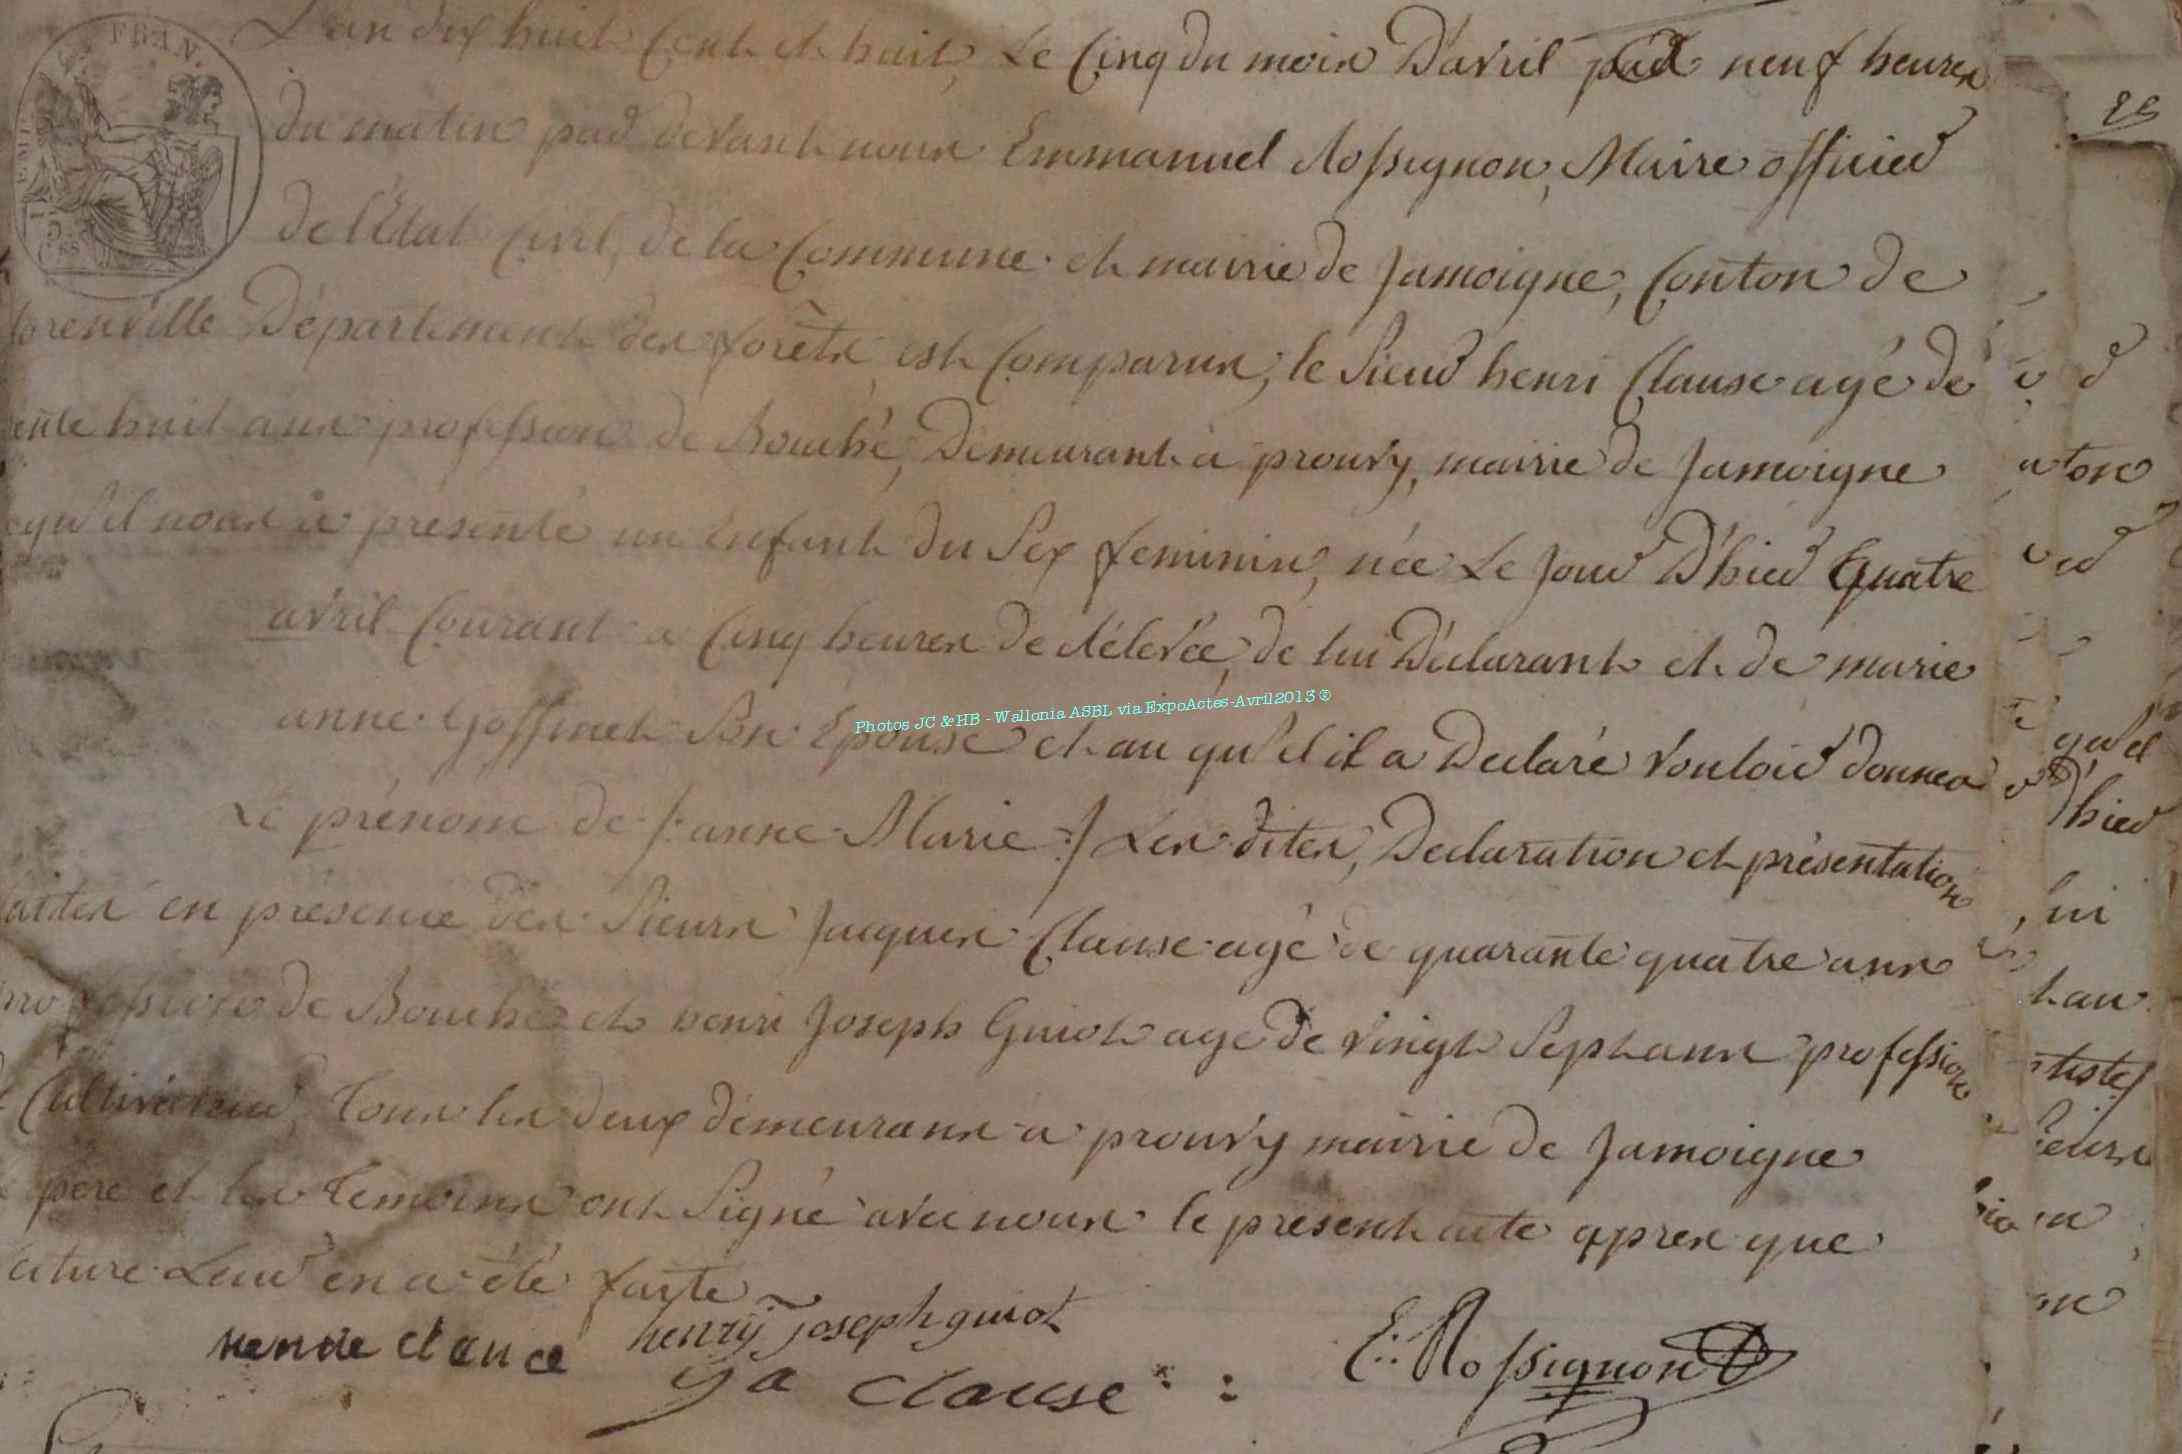 FRAN.
L'an dix huit Cent et huit, Le Cinq du mois D'avril par neuf heures
du matin par devant nous Emmanuel Rossignon, Maire officier
de l'Etat Civil, de la Commune et mairie de Jamoigne, Conton de
florenville Département des forêts est Comparus, le Sieur henri Clause agé de
ente huit ans profession de Bouché, Demeurant à prouvy, mairie de Jamoigne
qu'il nous a présenté un Enfant du Sex feminin, née Le Jour D'hier Quatre
avril Courant a Cinq heures de rélevée, de lui Déclarant et de marie
anne Goffinet Son Epouse et au qu'el il a Declaré vouloir donner
Le prénom de /: anne Marie :/ Les dites, Declaration et présentation
faites en présence des Sieurs Jacques Clause agé de quarante quatre ans
profession de Bouché et henri Joseph Guiot age de vingt Sept ans profession
Cultivateur, Tous les deux demeurans a prouvy mairie de Jamoigne
père et les Temoins ont Signé avec nous le présent acte apres que
cture Leur en a été faite
henrie clauce henry joseph guiot
ja clause E: Rossignon
Photos JC & HB - Wallonia ASBL via ExpoActes-Avril2013 ®
qu'el
D'hier
lui